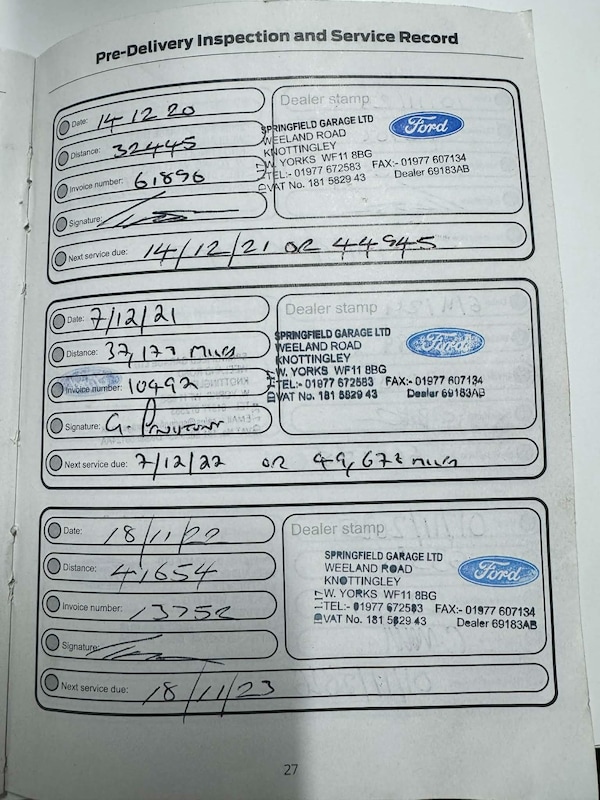 Pre-Delivery Inspection and Service Record
Date: 14 12 20
Distance: 32445
Invoice number: 61896
Signature:
Next service due: 14/12/21 OR 44945
Dealer stamp
SPRINGFIELD GARAGE LTD
WEELAND ROAD
KNOTTINGLEY
W. YORKS WF11 8BG
TEL:- 01977 672583 FAX:- 01977 607134
VAT No. 181 5829 43 Dealer 69183AB
Ford
Date: 7/12/21
Distance: 37,177 miles
Invoice number: 10492
Signature: G.
Next service due: 7/12/22 OR 49,677 miles
Dealer stamp
SPRINGFIELD GARAGE LTD
WEELAND ROAD
KNOTTINGLEY
W. YORKS WF11 8BG
TEL:- 01977 672583 FAX:- 01977 607134
VAT No. 181 5829 43 Dealer 69183AB
Ford
Date: 18/11/22
Distance: 41654
Invoice number: 13752
Signature:
Next service due: 18/11/23
Dealer stamp
SPRINGFIELD GARAGE LTD
WEELAND ROAD
KNOTTINGLEY
W. YORKS WF11 8BG
TEL:- 01977 672583 FAX:- 01977 607134
VAT No. 181 5829 43 Dealer 69183AB
Ford
27